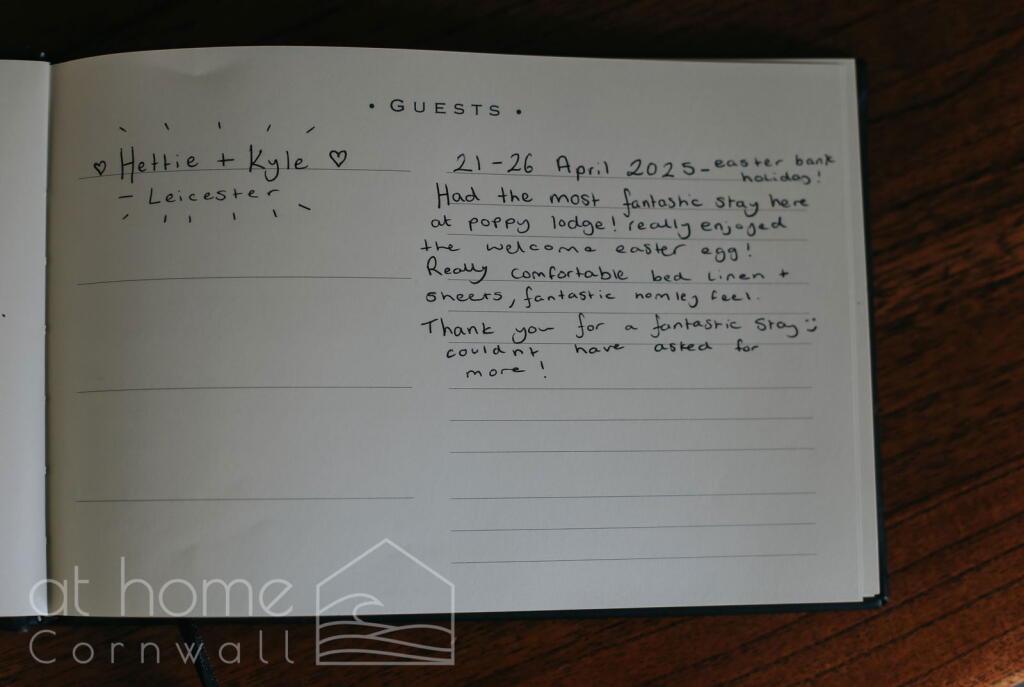 • GUESTS •
♡ Hettie + Kyle ♡
- Leicester
21-26 April 2025 - easter bank
holiday!
Had the most fantastic stay here
at poppy lodge! really enjoyed
the welcome easter egg!
Really comfortable bed linen +
sheets, fantastic homley feel.
Thank you for a fantastic stay :)
couldnt have asked for
more!
at home
Cornwall